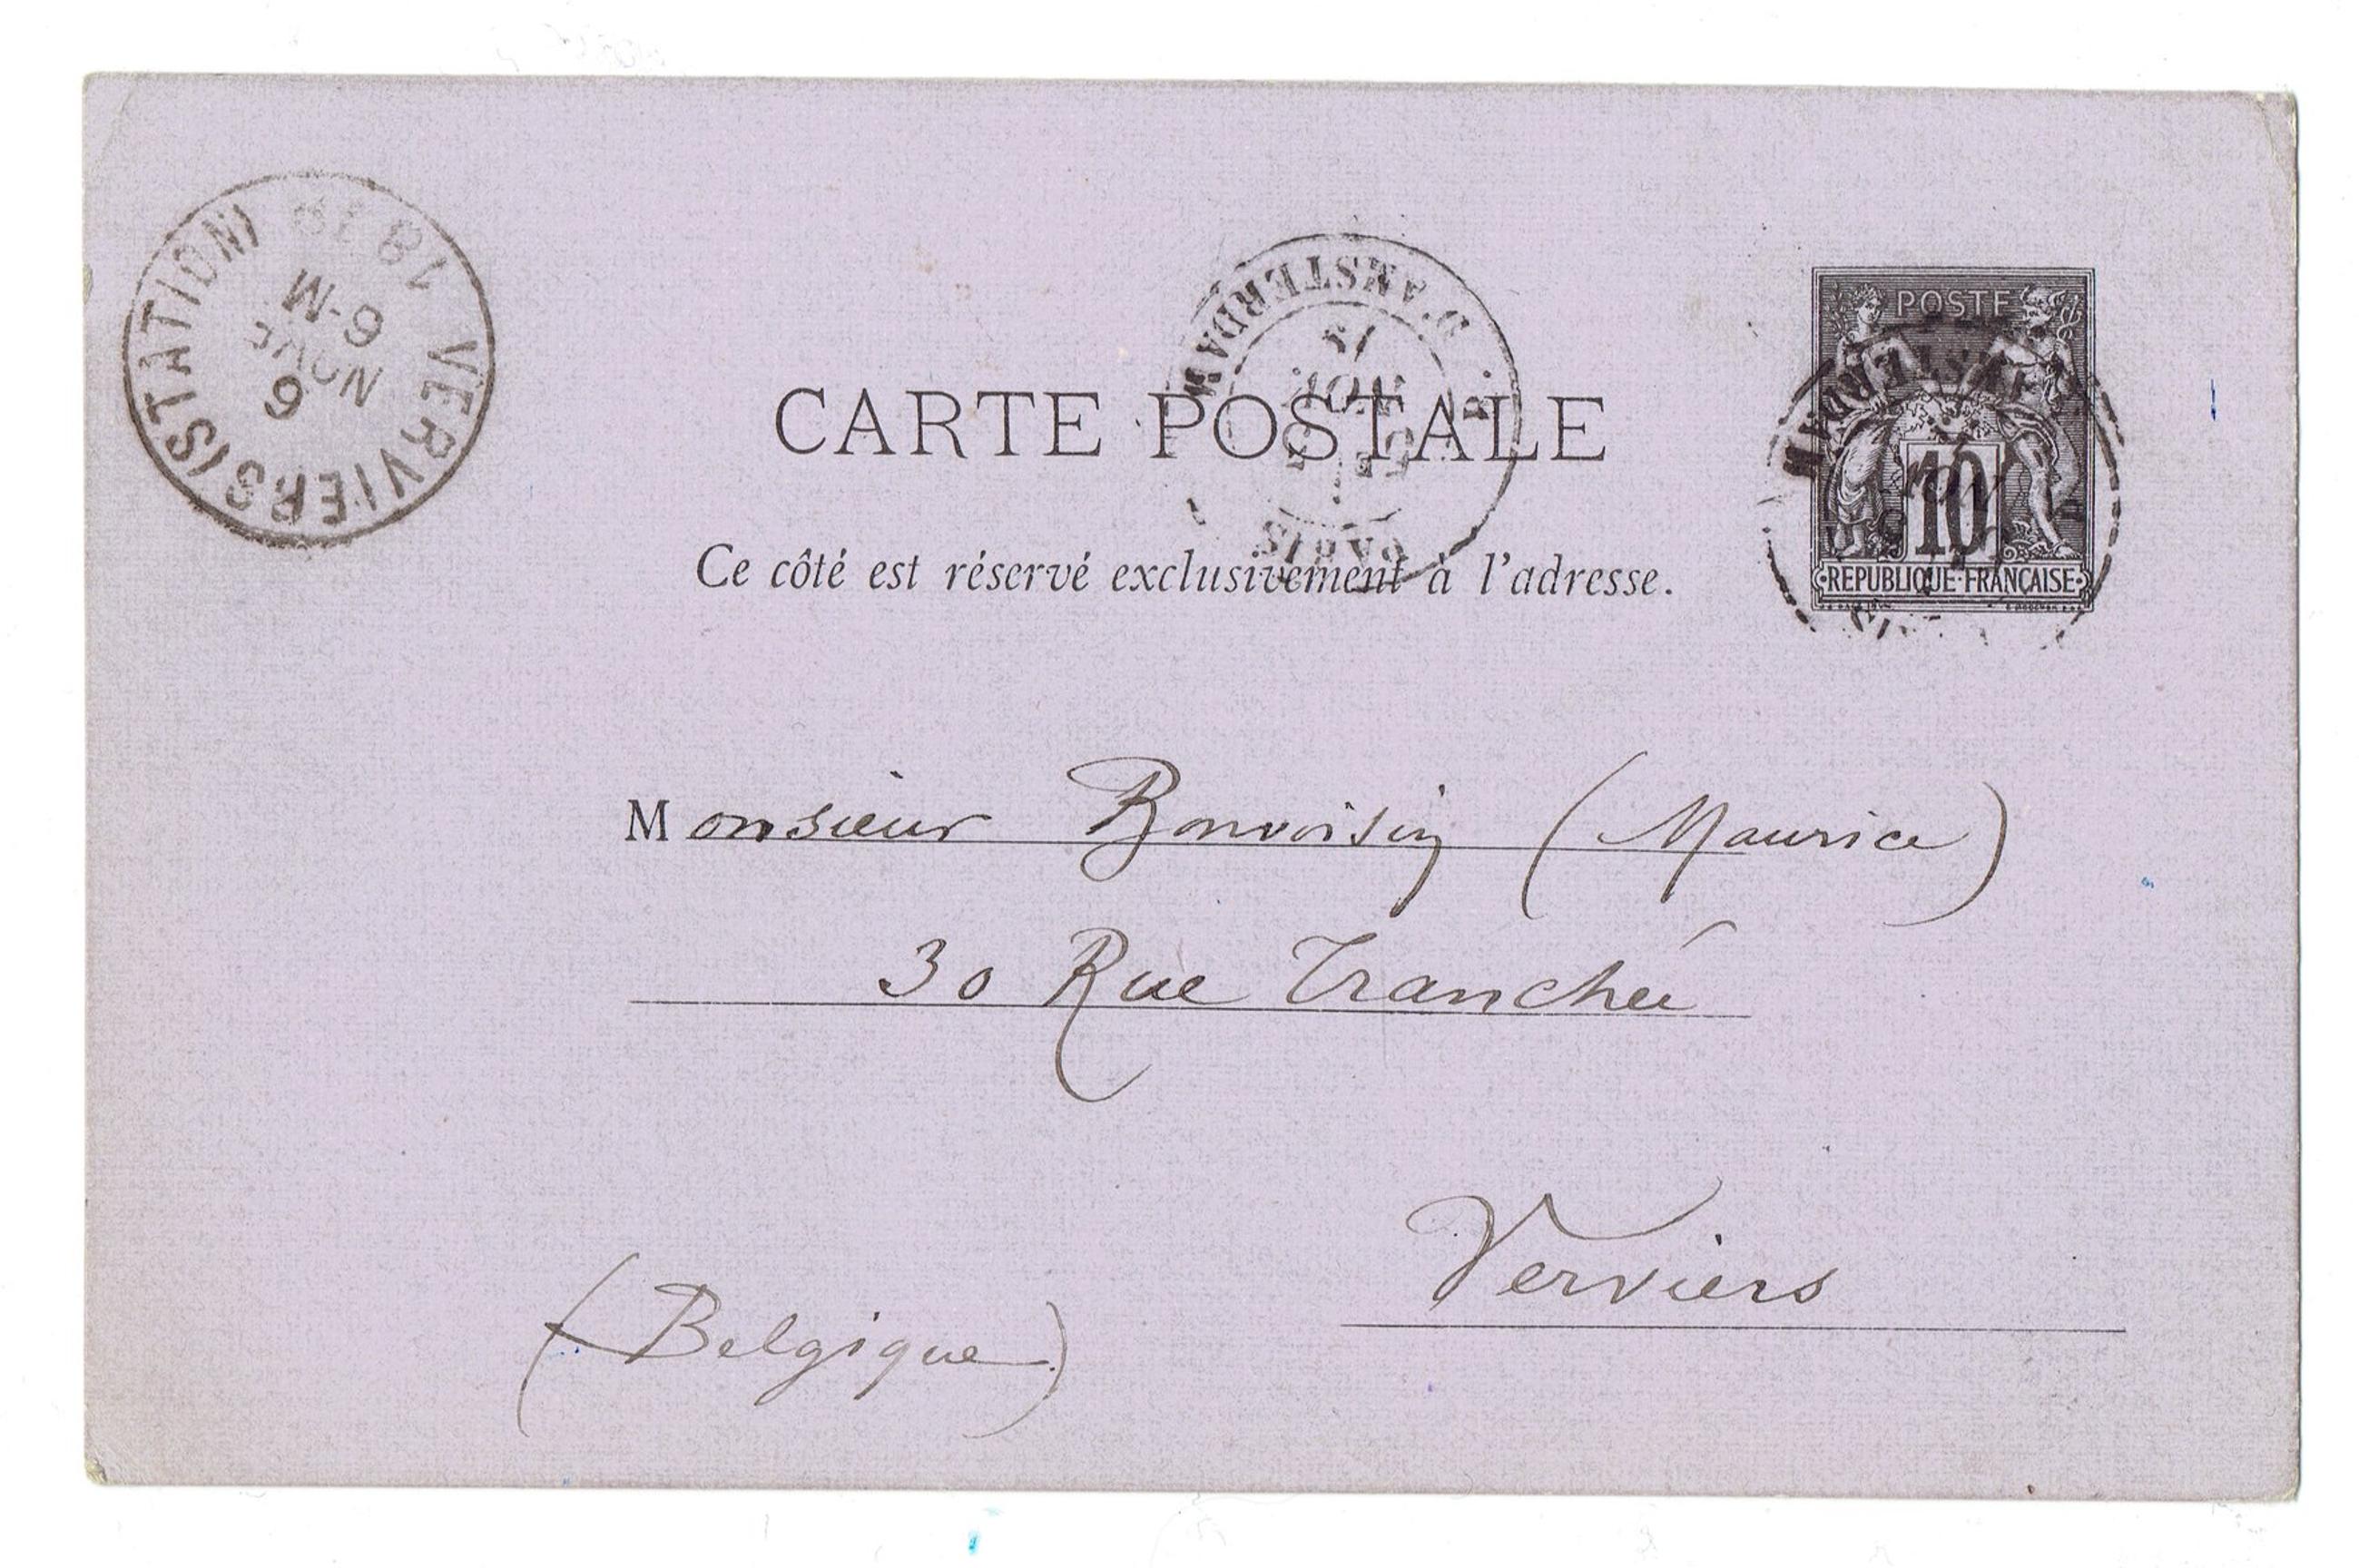 VERVIERS (STATION)
6
NOVE
6-M
R. D'AMSTERDAM
PARIS
POSTE
10
REPUBLIQUE·FRANÇAISE
CARTE POSTALE
Ce côté est réservé exclusivement à l'adresse.
Monsieur Bonvoisin (Maurice)
30 Rue Tranchée
Verviers
(Belgique)